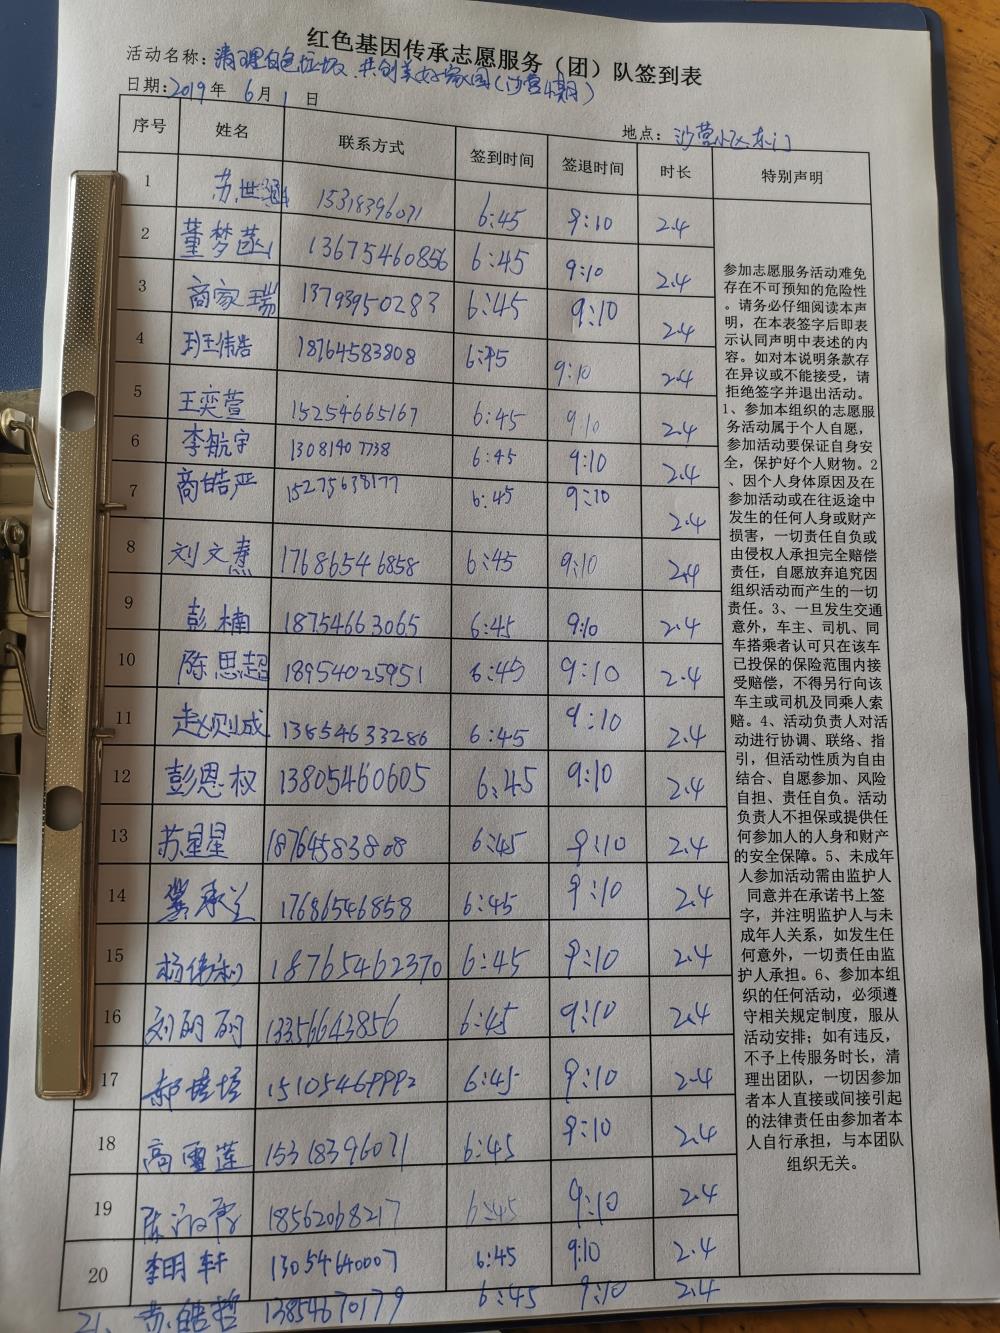 红色基因传承志愿服务（团）队签到表
活动名称：清理白色垃圾，共创美好家园（沙营4期）
日期：2019年 6月1日
地点：沙营小区东门
序号 姓名 联系方式 签到时间 签退时间 时长 特别声明
1 苏世 15318396071 6:45 9:10 2.4
2 董梦菡 13675460856 6:45 9:10 2.4
3 商家瑞 13793950283 6:45 9:10 2.4
4 伟浩 18764583808 6:45 9:10 2.4
5 王奕萱 15254665167 6:45 9:10 2.4
6 李航宇 13081407738 6:45 9:10 2.4
7 商皓严 15275638177 6:45 9:10 2.4
8 刘文焘 17686546858 6:45 9:10 2.4
9 彭楠 18754663065 6:45 9:10 2.4
10 陈思超 18954025951 6:45 9:10 2.4
11 赵则成 13854633286 6:45 9:10 2.4
12 彭恩权 13805460605 6:45 9:10 2.4
13 苏星星 18764583808 6:45 9:10 2.4
14 17686546858 6:45 9:10 2.4
15 杨伟利 18765462370 6:45 9:10 2.4
16 刘砑砑 13356643856 6:45 9:10 2.4
17 郝培培 15105469992 6:45 9:10 2.4
18 高雪莲 15318396071 6:45 9:10 2.4
19 陈 18562068217 6:45 9:10 2.4
20 李明轩 13054640007 6:45 9:10 2.4
21、苏皓哲 13854670179 6:45 9:10 2.4
参加志愿服务活动难免
存在不可预知的危险性
。请务必仔细阅读本声
明，在本表签字后即表
示认同声明中表述的内
容。如对本说明条款存
在异议或不能接受，请
拒绝签字并退出活动。
1、参加本组织的志愿服
务活动属于个人自愿，
参加活动要保证自身安
全，保护好个人财物。2
、因个人身体原因及在
参加活动或在往返途中
发生的任何人身或财产
损害，一切责任自负或
由侵权人承担完全赔偿
责任，自愿放弃追究因
组织活动而产生的一切
责任。3、一旦发生交通
意外，车主、司机、同
车搭乘者认可只在该车
已投保的保险范围内接
受赔偿，不得另行向该
车主或司机及同乘人索
赔。4、活动负责人对活
动进行协调、联络、指
引，但活动性质为自由
结合、自愿参加、风险
自担、责任自负。活动
负责人不担保或提供任
何参加人的人身和财产
的安全保障。5、未成年
人参加活动需由监护人
同意并在承诺书上签
字，并注明监护人与未
成年人关系，如发生任
何意外，一切责任由监
护人承担。6、参加本组
织的任何活动，必须遵
守相关规定制度，服从
活动安排；如有违反，
不予上传服务时长，清
理出团队，一切因参加
者本人直接或间接引起
的法律责任由参加者本
人自行承担，与本团队
组织无关。